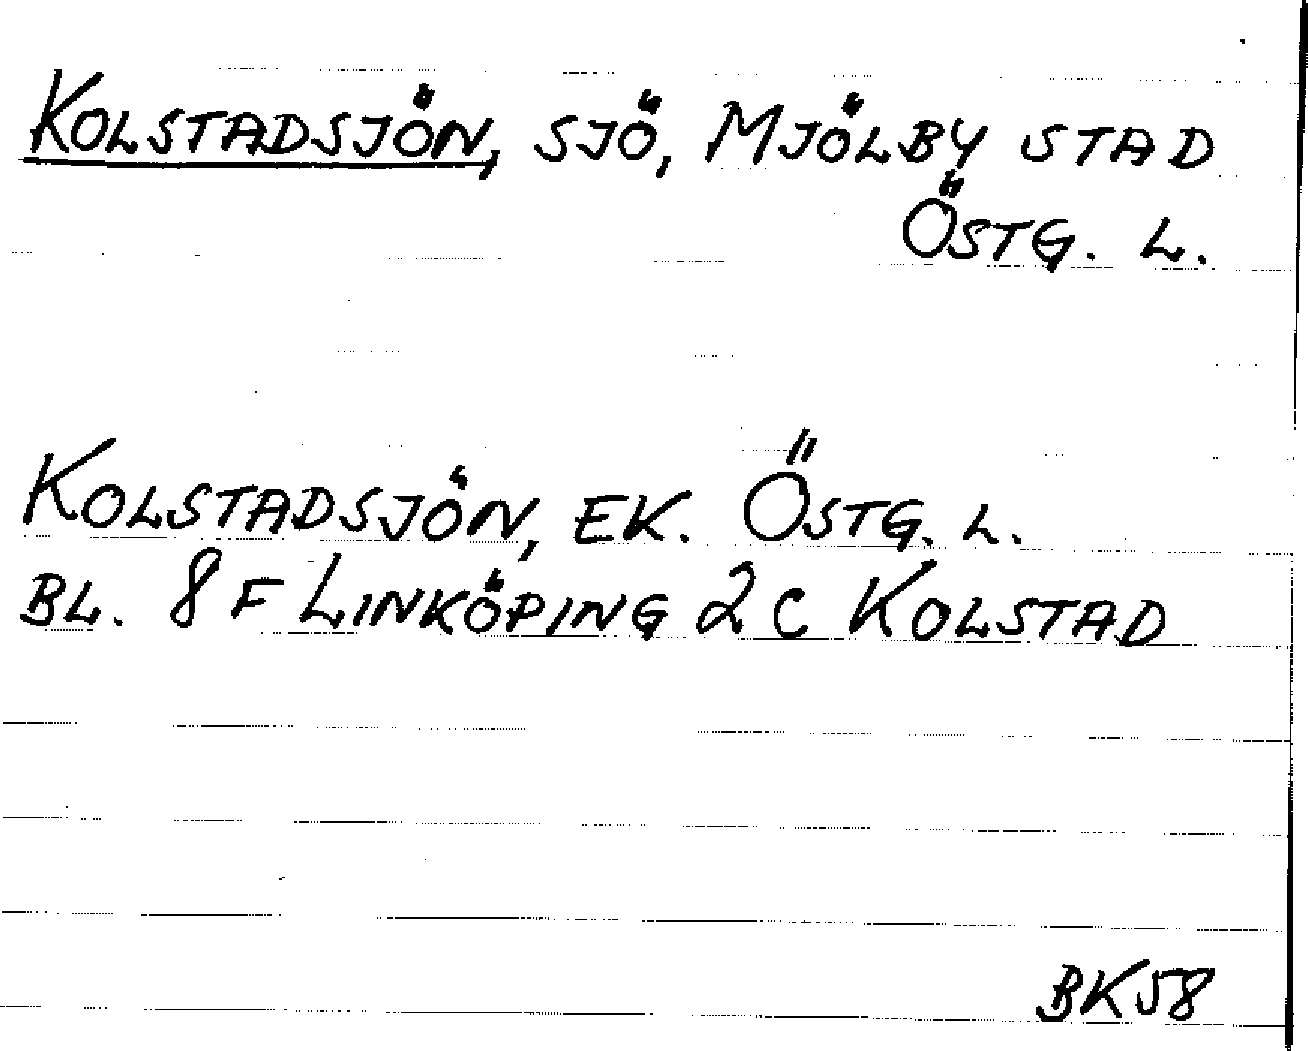 KOLSTADSJÖN, SJÖ, MJÖLBY STAD
ÖSTG. L.
KOLSTADSJÖN, EK. ÖSTG. L.
BL. 8 F LINKÖPING 2 C KOLSTAD
BK58